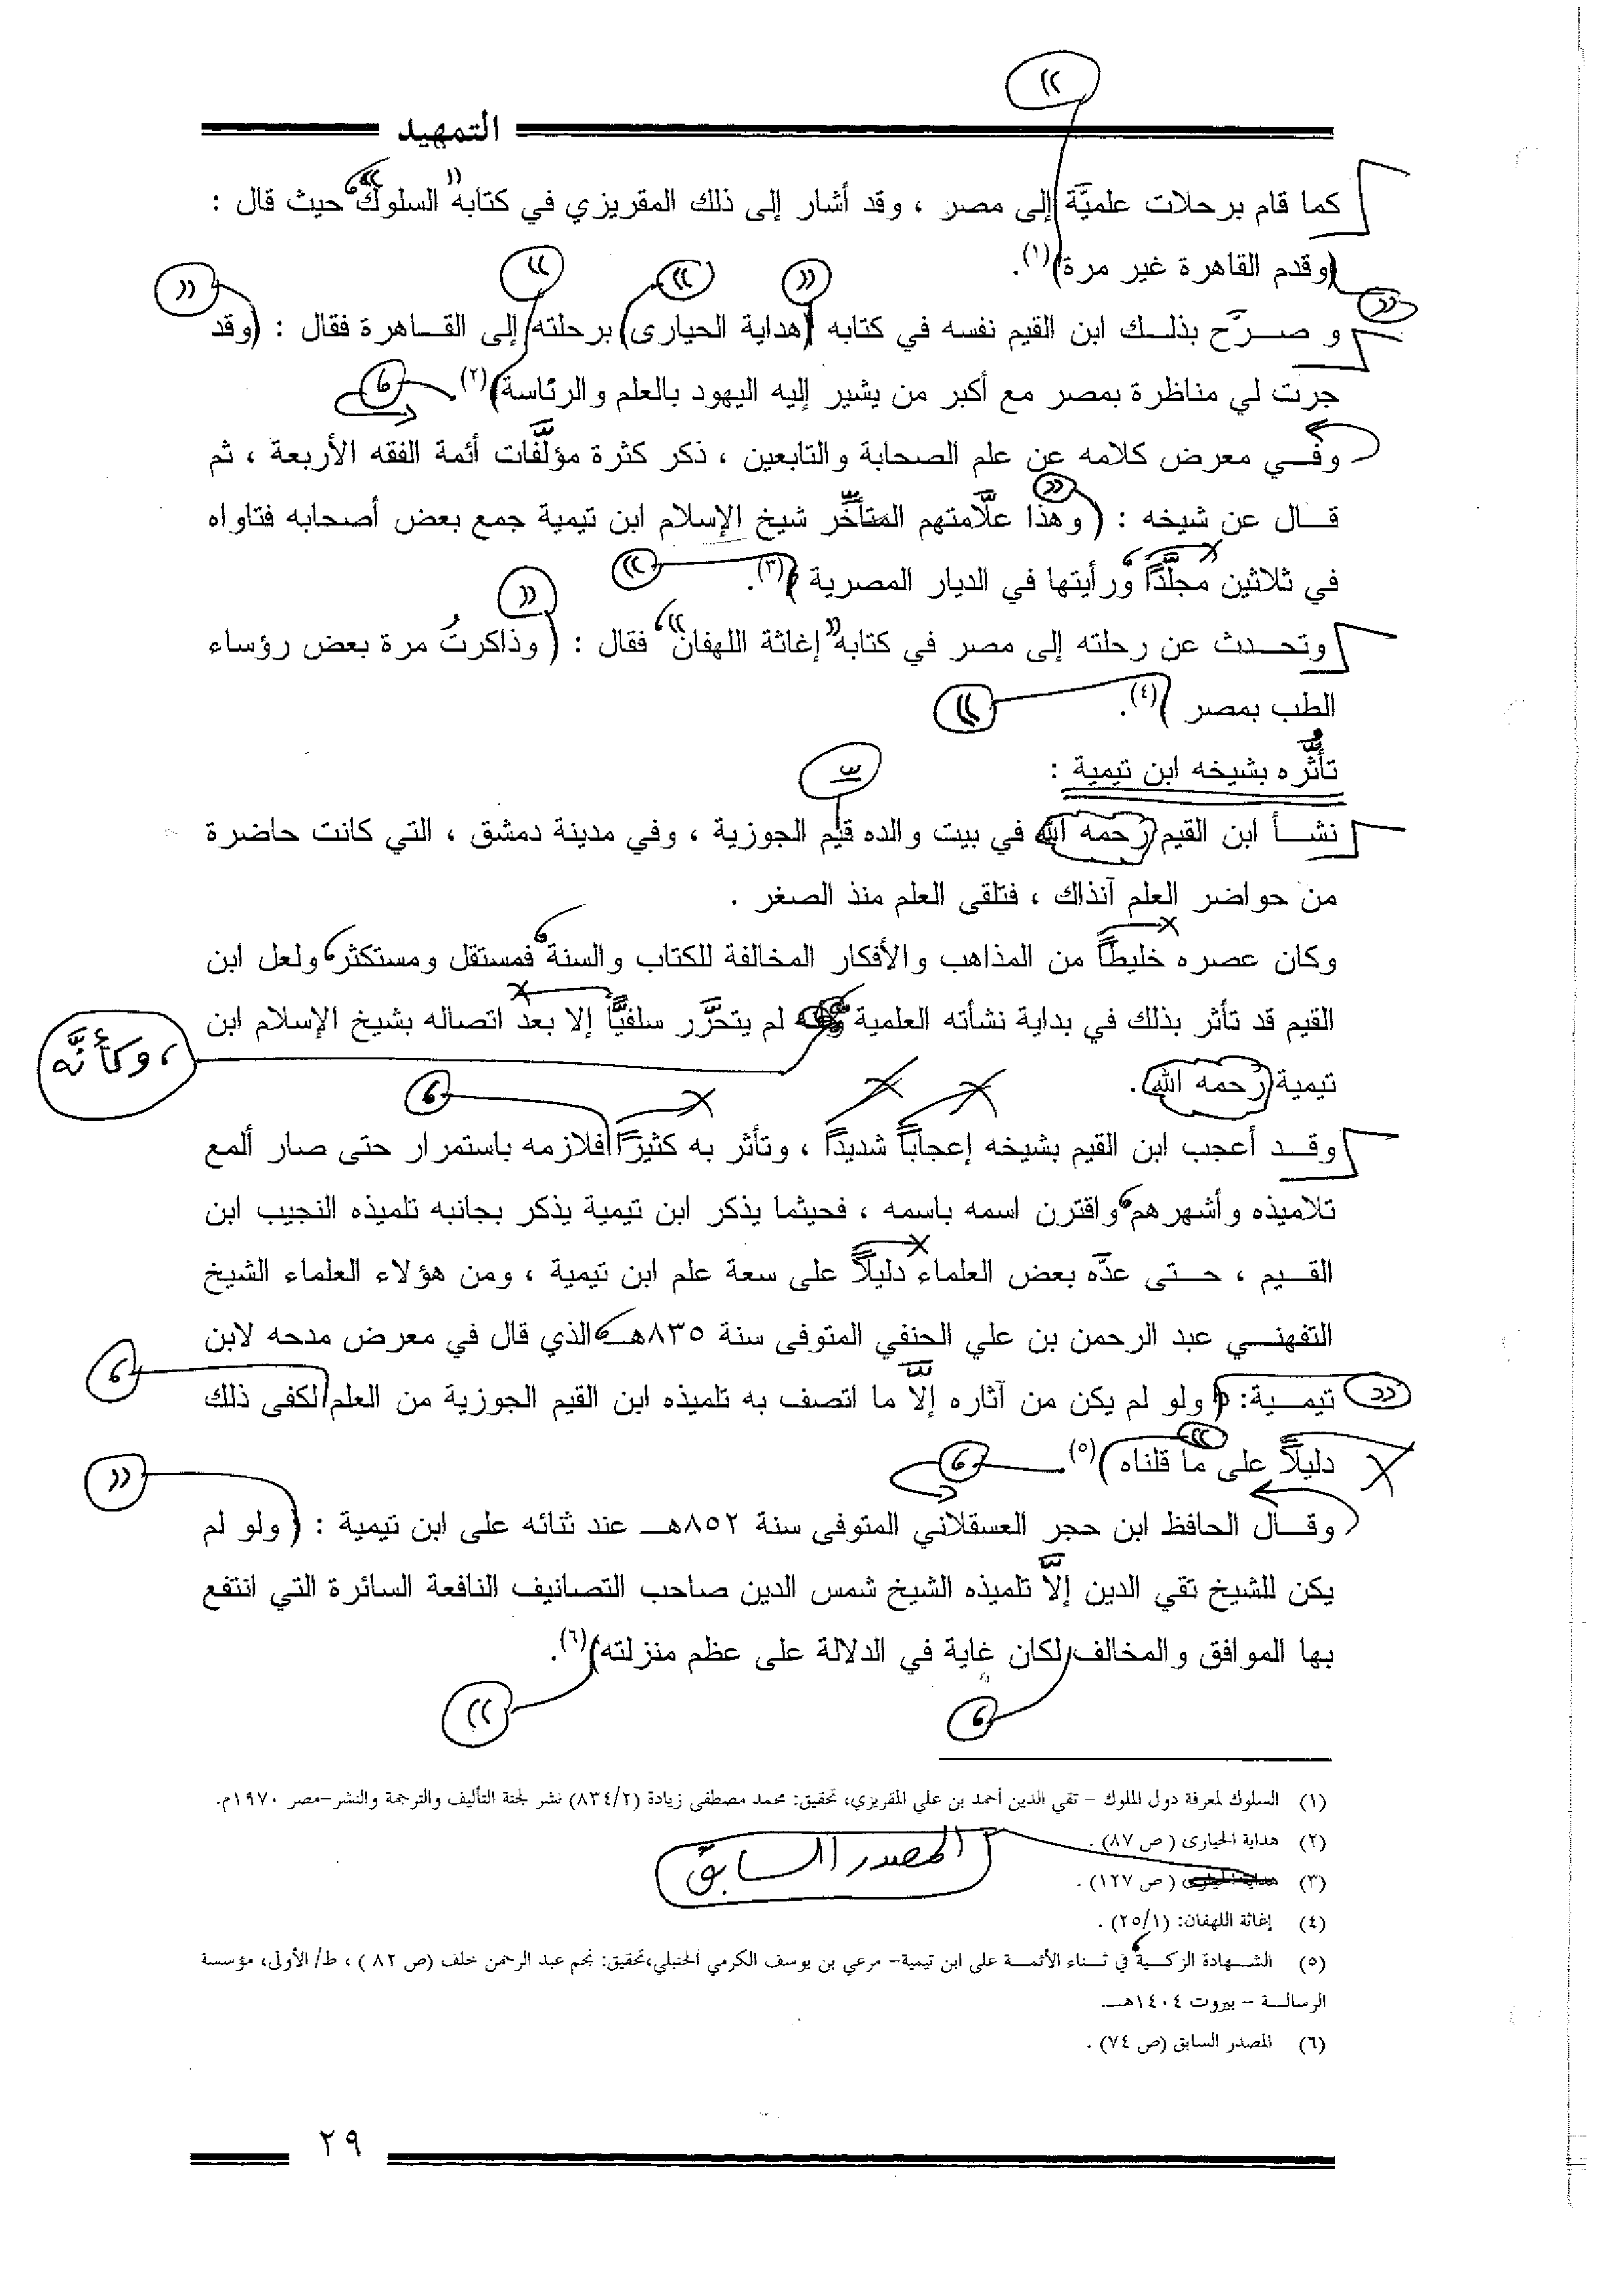 التمهيد
كما قام برحلات علميَّة إلى مصر ، وقد أشار إلى ذلك المقريزي في كتابه "السلوك" حيث قال :
(وقدم القاهرة غير مرة)(١).
و صرَّح بذلك ابن القيم نفسه في كتابه (هداية الحيارى) برحلته إلى القاهرة فقال : (وقد
جرت لي مناظرة بمصر مع أكبر من يشير إليه اليهود بالعلم والرئاسة)(٢).
وفي معرض كلامه عن علم الصحابة والتابعين ، ذكر كثرة مؤلَّفات أئمة الفقه الأربعة ، ثم
قال عن شيخه : ( وهذا علاَّمتهم المتأخِّر شيخ الإسلام ابن تيمية جمع بعض أصحابه فتاواه
في ثلاثين مجلَّدًا ورأيتها في الديار المصرية )(٣).
وتحدث عن رحلته إلى مصر في كتابه "إغاثة اللهفان" ، فقال : ( وذاكرتُ مرة بعض رؤساء
الطب بمصر )(٤).
تأثُّره بشيخه ابن تيمية :
نشأ ابن القيم (رحمه الله) في بيت والده قيّم الجوزية ، وفي مدينة دمشق ، التي كانت حاضرة
من حواضر العلم آنذاك ، فتلقى العلم منذ الصغر .
وكان عصره خليطاً من المذاهب والأفكار المخالفة للكتاب والسنة، فمستقل ومستكثر، ولعل ابن
القيم قد تأثر بذلك في بداية نشأته العلمية لم يتحرَّر سلفيًّا إلا بعد اتصاله بشيخ الإسلام ابن
، وكأنَّه
تيمية (رحمه الله).
وقد أعجب ابن القيم بشيخه إعجاباً شديداً ، وتأثر به كثيرًا فلازمه باستمرار حتى صار ألمع
تلاميذه وأشهرهم، واقترن اسمه باسمه ، فحيثما يذكر ابن تيمية يذكر بجانبه تلميذه النجيب ابن
القيم ، حتى عدَّه بعض العلماء دليلاً على سعة علم ابن تيمية ، ومن هؤلاء العلماء الشيخ
التفهني عبد الرحمن بن علي الحنفي المتوفى سنة ٨٣٥هـ، الذي قال في معرض مدحه لابن
تيمية: ( ولو لم يكن من آثاره إلاَّ ما اتصف به تلميذه ابن القيم الجوزية من العلم لكفى ذلك
دليلاً على ما قلناه )(٥).
وقال الحافظ ابن حجر العسقلاني المتوفى سنة ٨٥٢هـ عند ثنائه على ابن تيمية : ( ولو لم
يكن للشيخ تقي الدين إلاَّ تلميذه الشيخ شمس الدين صاحب التصانيف النافعة السائرة التي انتفع
بها الموافق والمخالف لكان غاية في الدلالة على عظم منزلته)(٦).
(١) السلوك لمعرفة دول الملوك – تقي الدين أحمد بن علي المقريزي، تحقيق: محمد مصطفى زيادة (٨٣٤/٢) نشر لجنة التأليف والترجمة والنشر–مصر ١٩٧٠م.
(٢) هداية الحيارى ( ص ٨٧) .
المصدر السابق
(٣) هداية الحيارى ( ص ١٢٧) .
(٤) إغاثة اللهفان: (٢٥/١) .
(٥) الشهادة الزكية، في ثناء الأئمة على ابن تيمية– مرعي بن يوسف الكرمي الحنبلي،تحقيق: نجم عبد الرحمن خلف (ص ٨٢ ) ، ط/ الأولى، مؤسسة
الرسالة – بيروت ١٤٠٤هـ.
(٦) المصدر السابق (ص ٧٤) .
٢٩